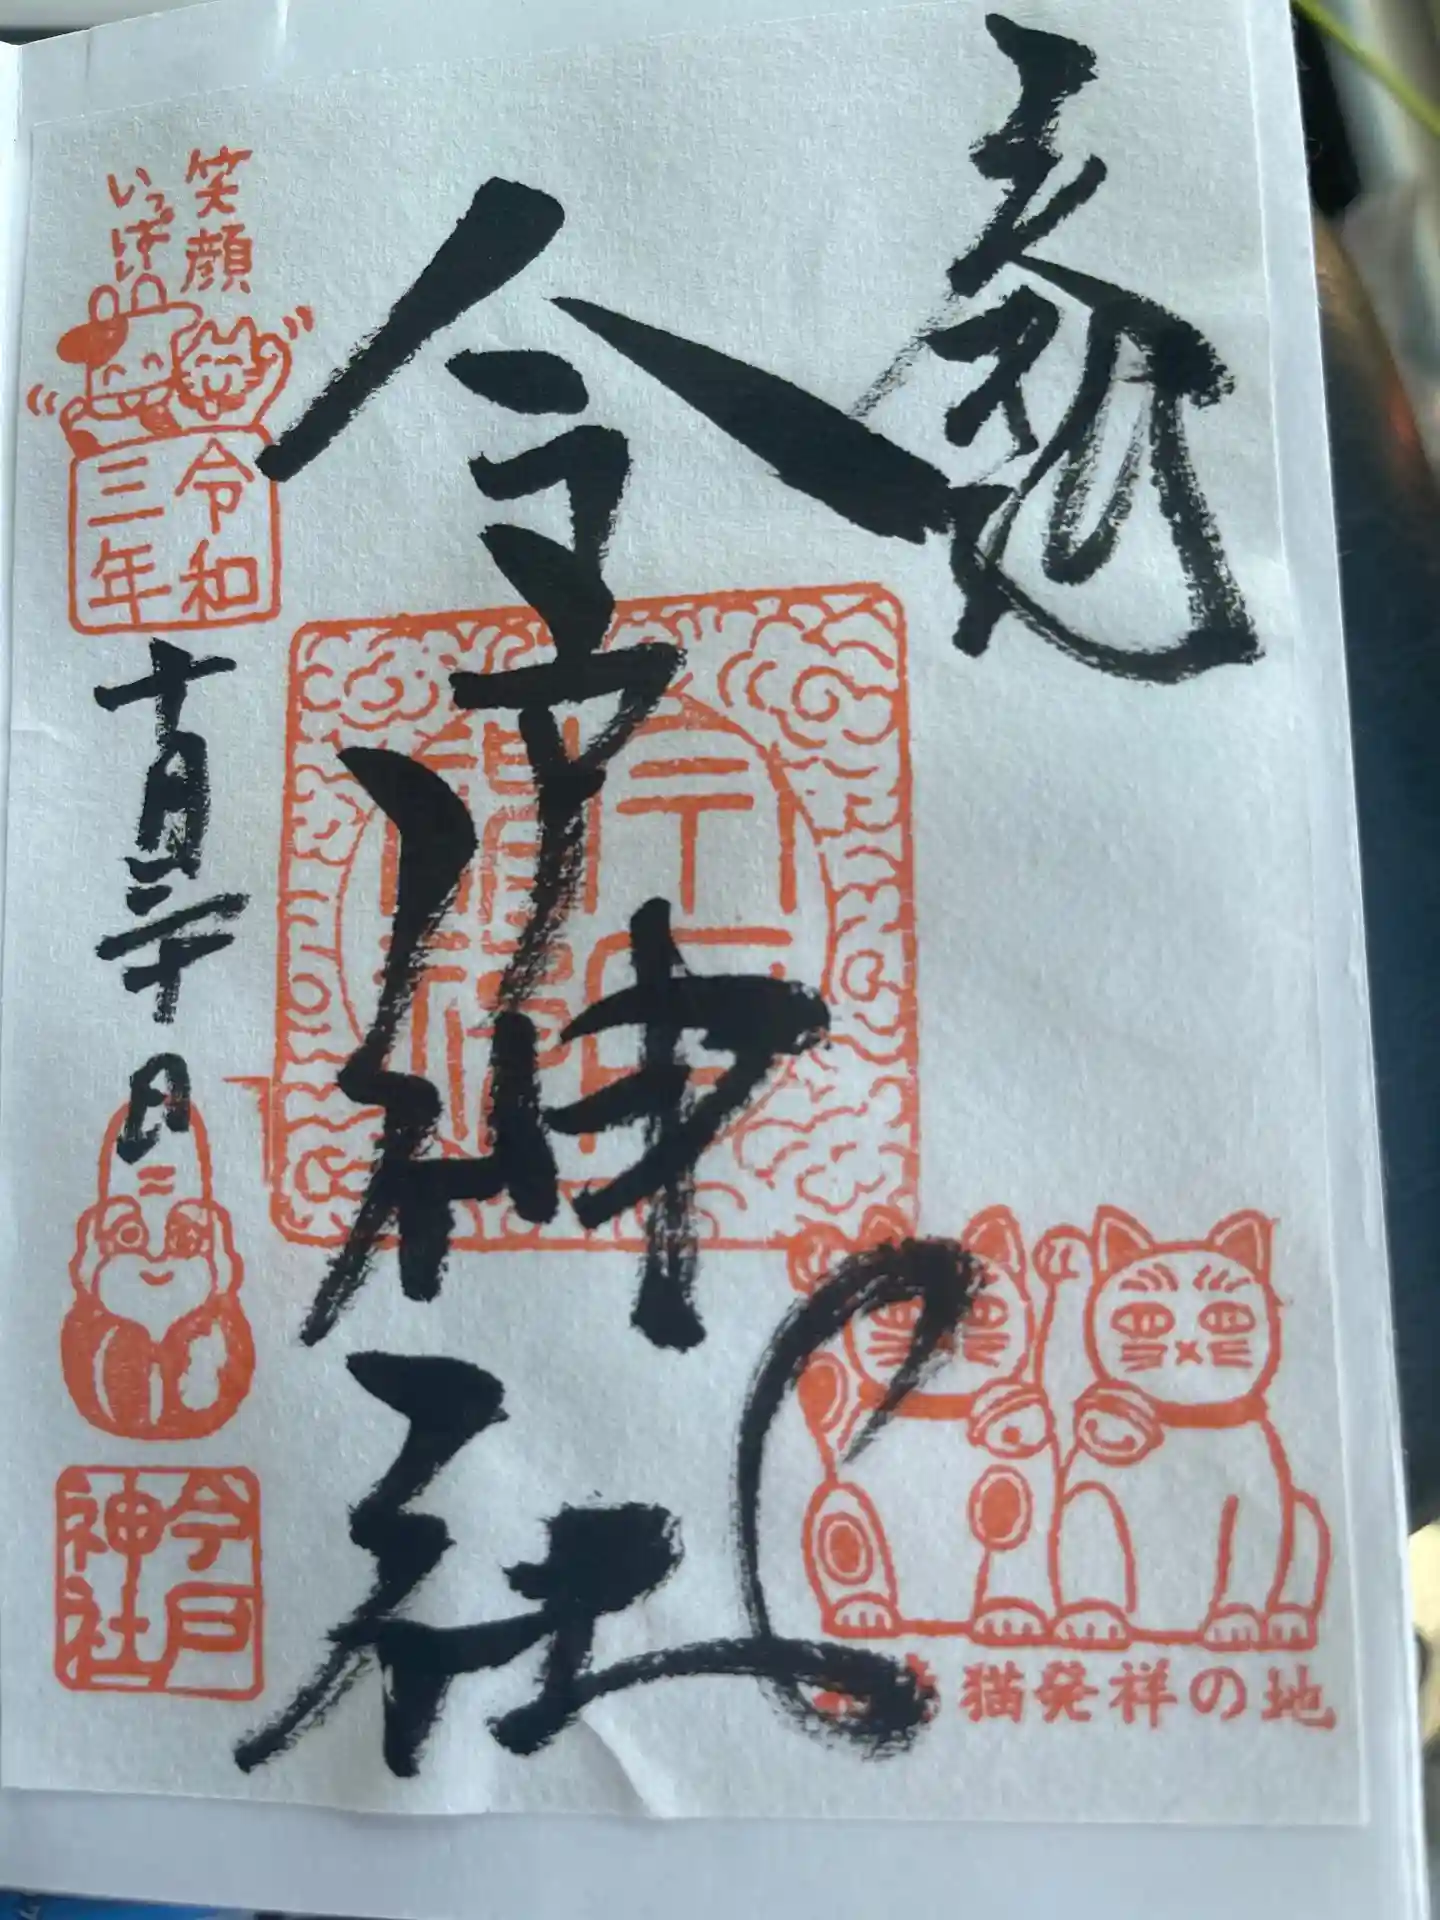 奉拝
今戸神社
笑顔
いっぱい
令和
三年
十月二十日
今戸
神社
招き猫発祥の地